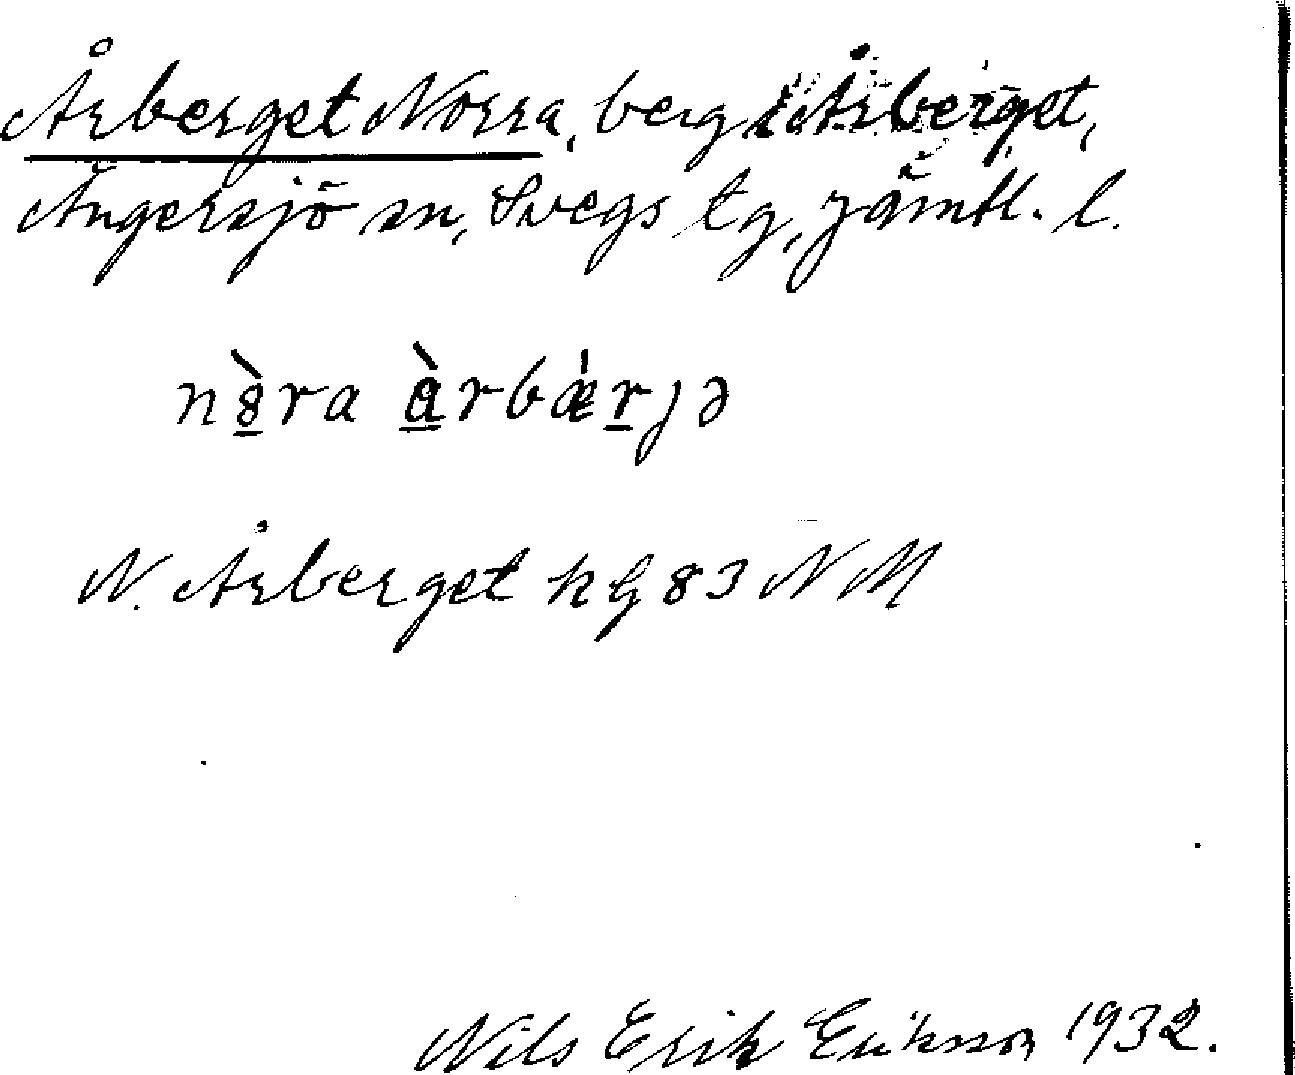 Årberget Norra, berg i Årberget,
Ängersjö sn, Svegs tg, Jämtl. l.
nö̀ra àrbærjə
N. Årberget kg 83 NM
Nils Erik Eriksson 1932.